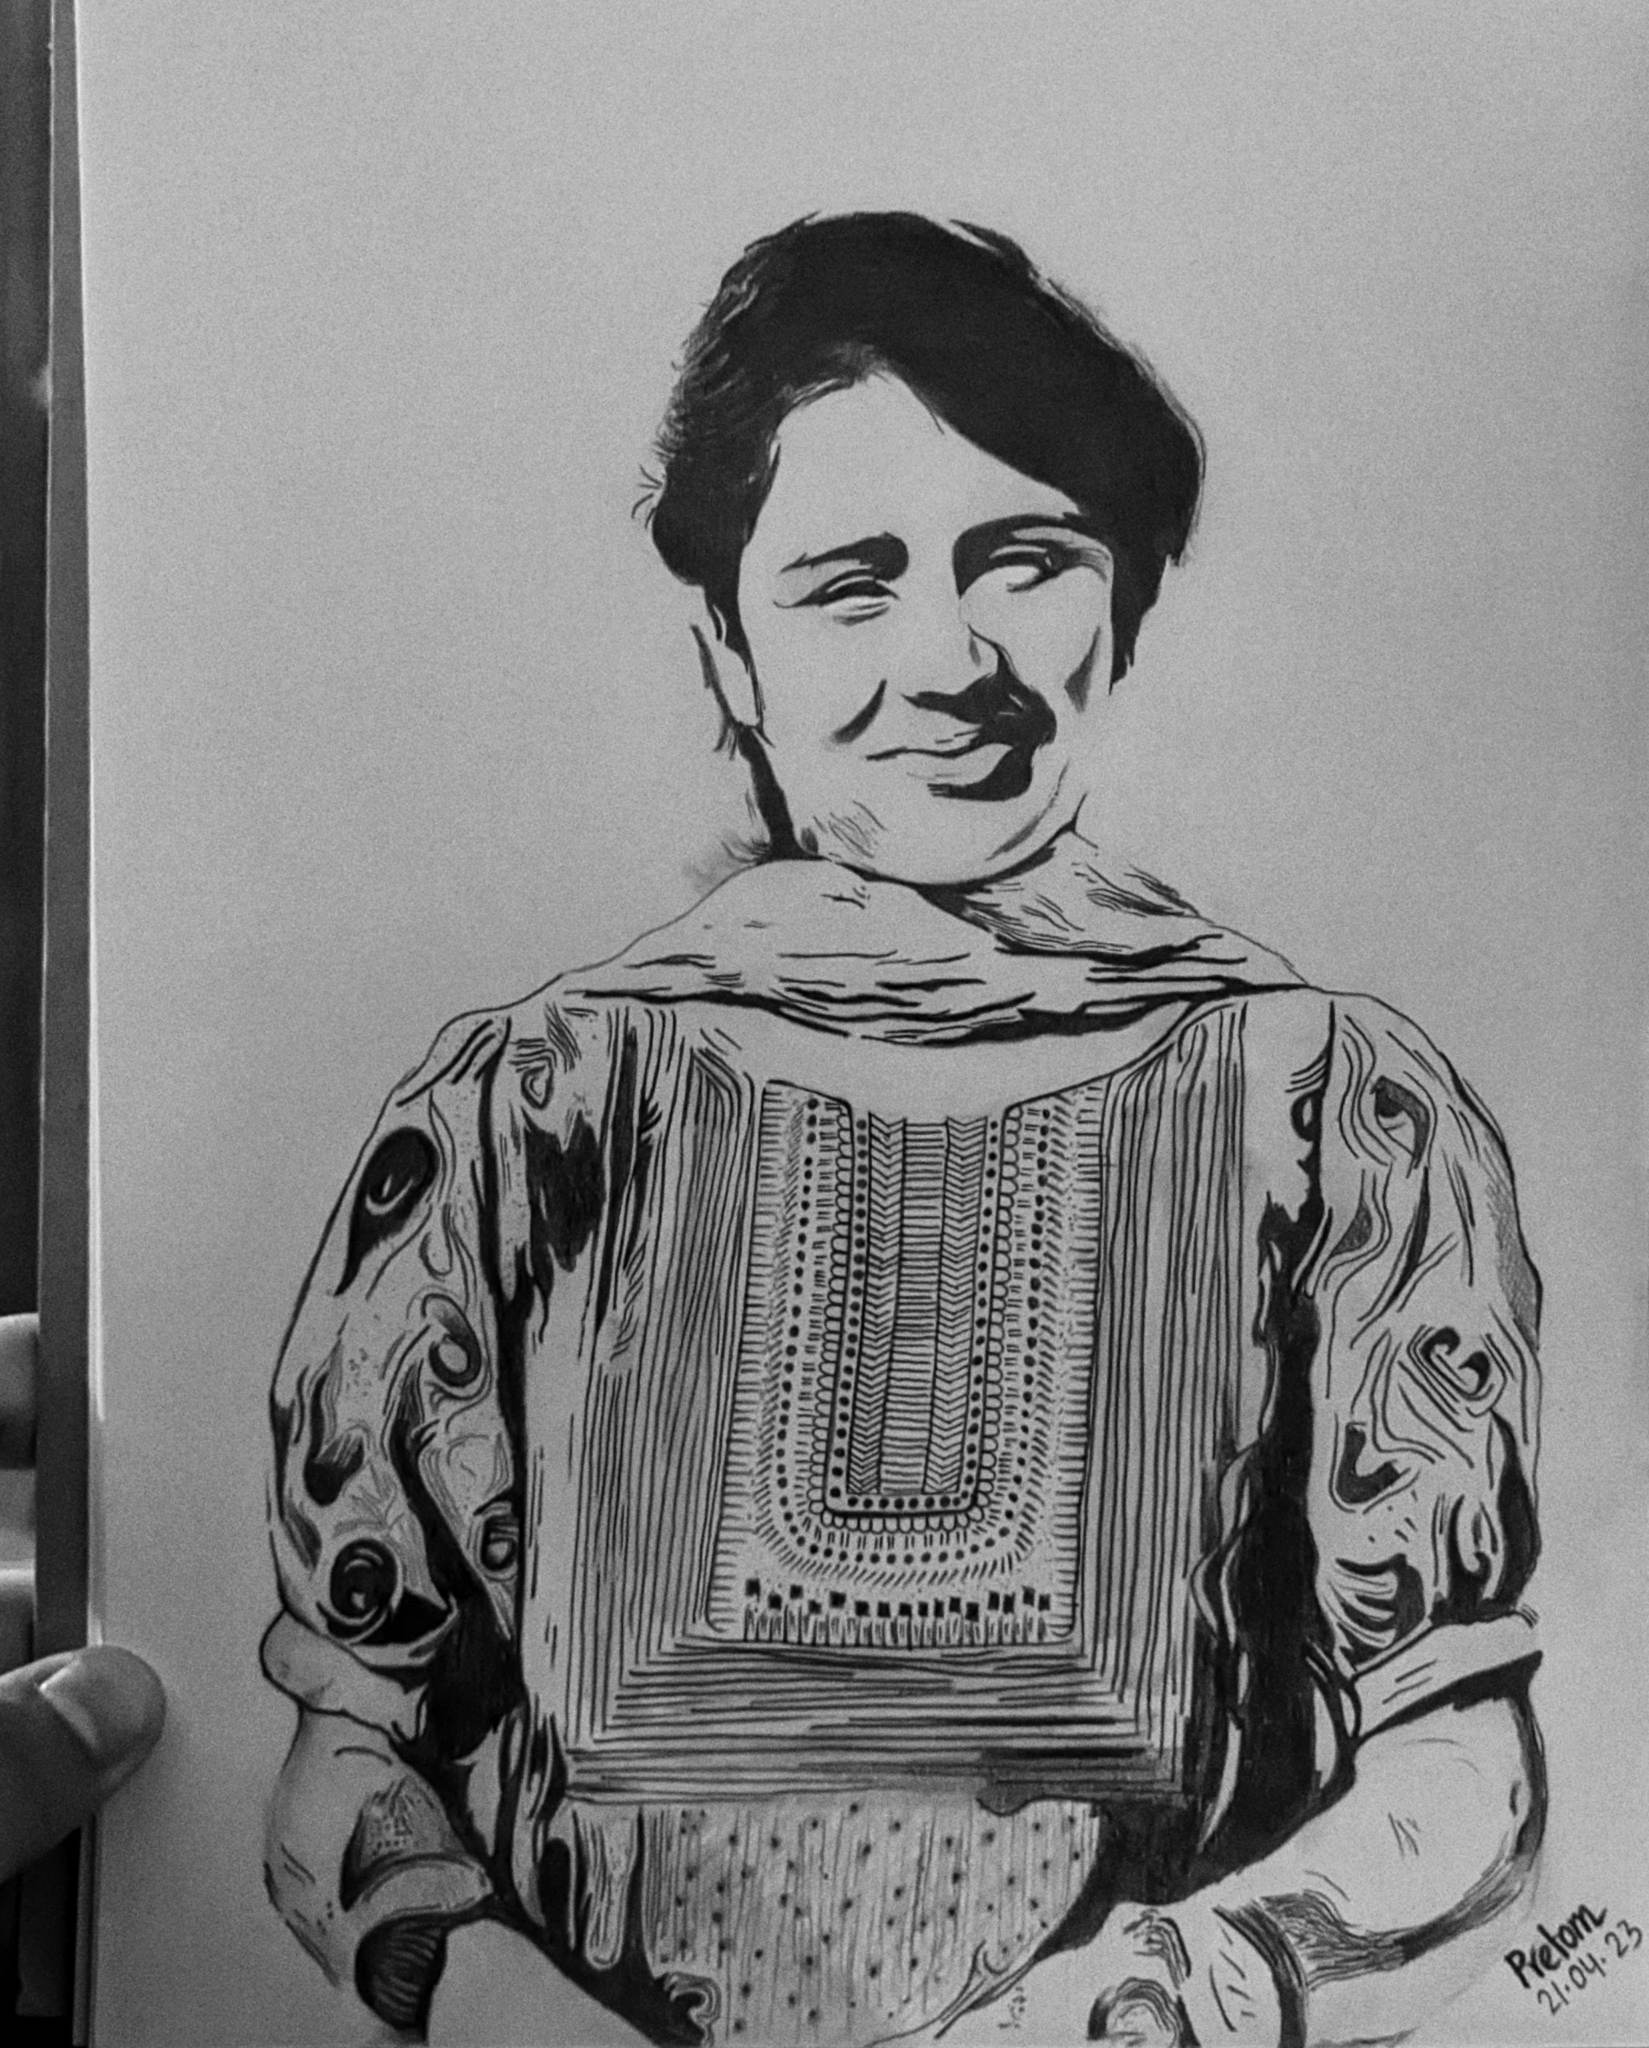 Pretom
21.04.23